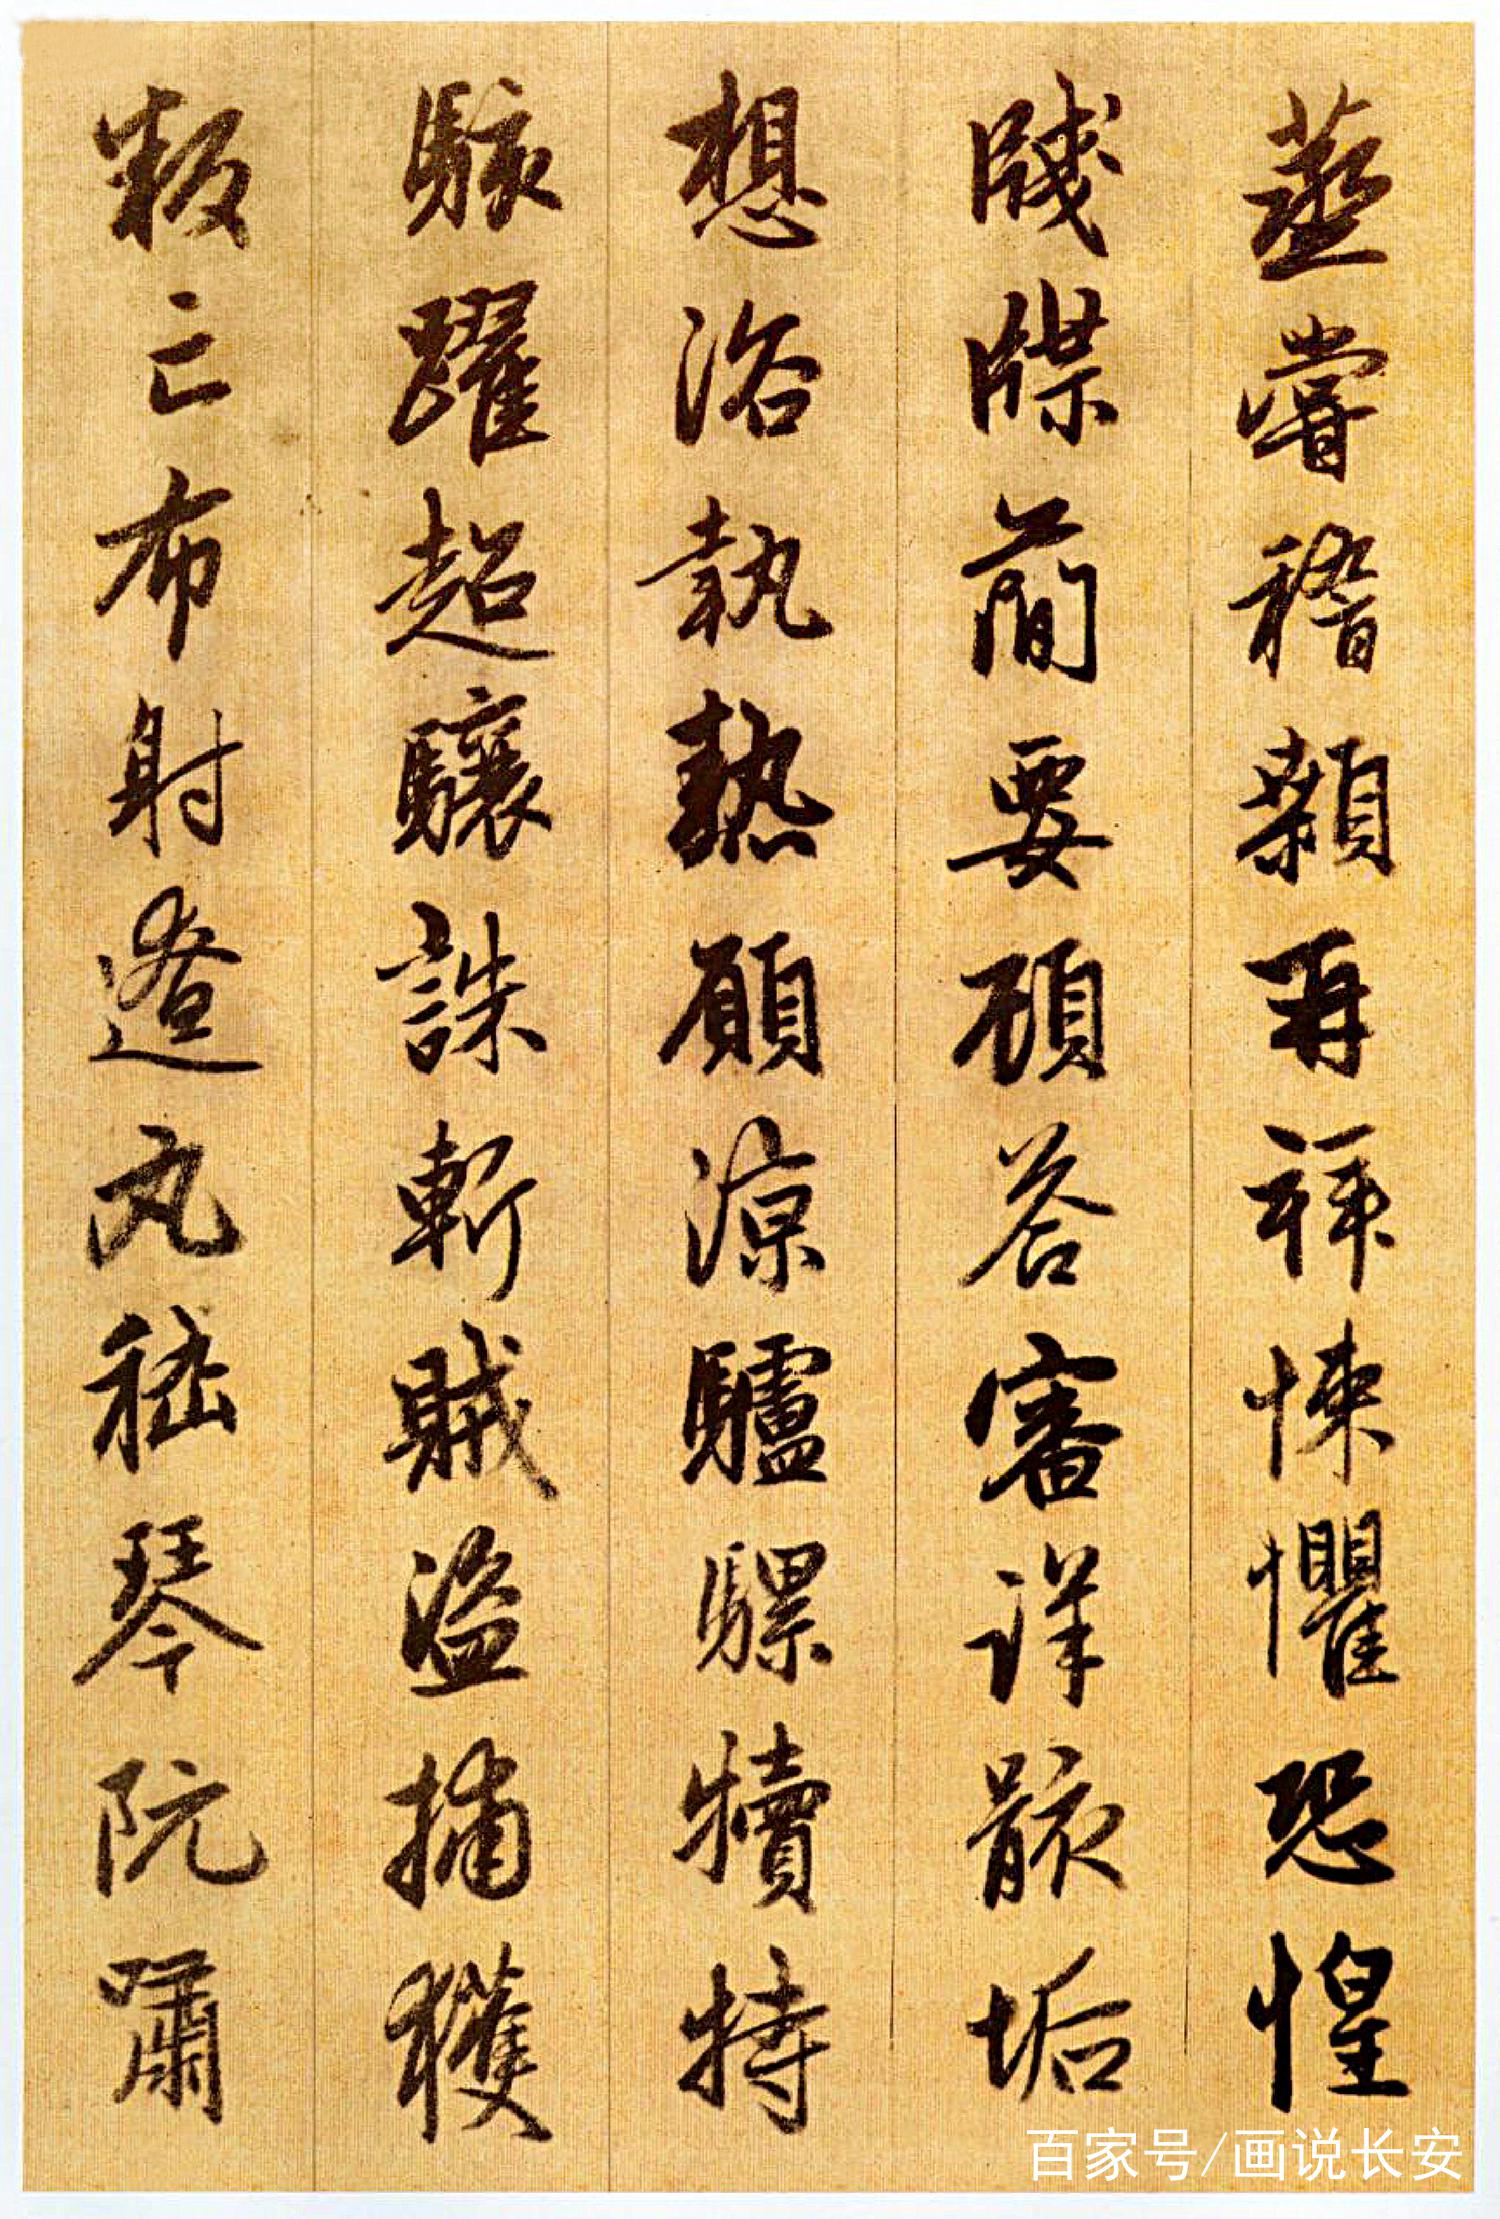 蒸嘗稽顙再拜悚懼恐惶
牋牒簡要顧答審詳骸垢
想浴執熱願涼驢騾犢特
駭躍超驤誅斬賊盜捕獲
叛亡布射遼丸嵇琴阮嘯
百家号/画说长安